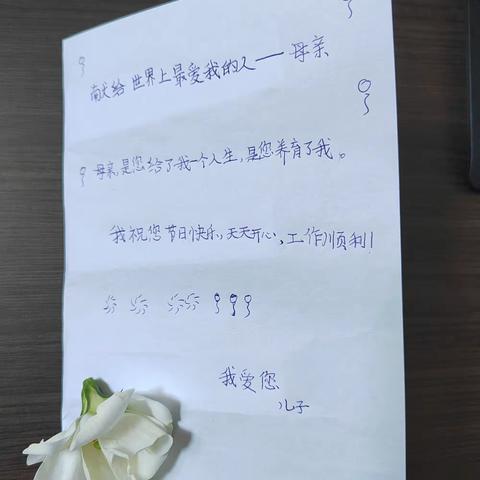 献给世界上最爱我的人——母亲
母亲,是您给了我一个人生,是您养育了我。
我祝您节日快乐,天天开心,工作顺利!
我爱您
儿子